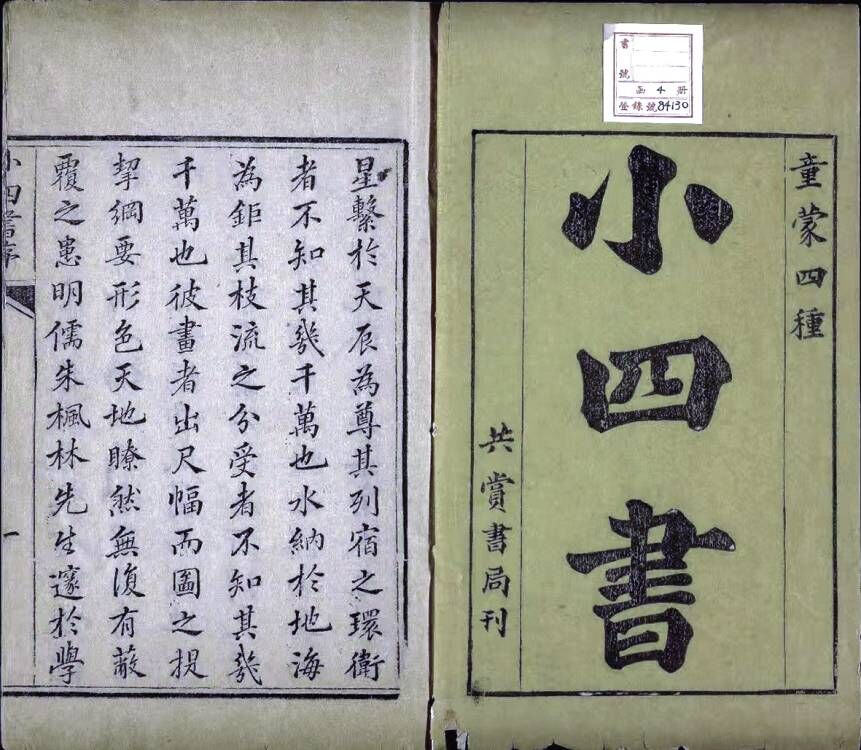 童蒙四種
小四書
共賞書局刊
書
號
函 4 册
登錄號 84130
星繫於天辰為尊其列宿之環衛
者不知其幾千萬也水納於地海
為鉅其枝流之分受者不知其幾
千萬也彼畫者出尺幅而圖之提
挈綱要形色天地瞭然無復有蔽
覆之患明儒朱楓林先生邃於學
小四書序
一